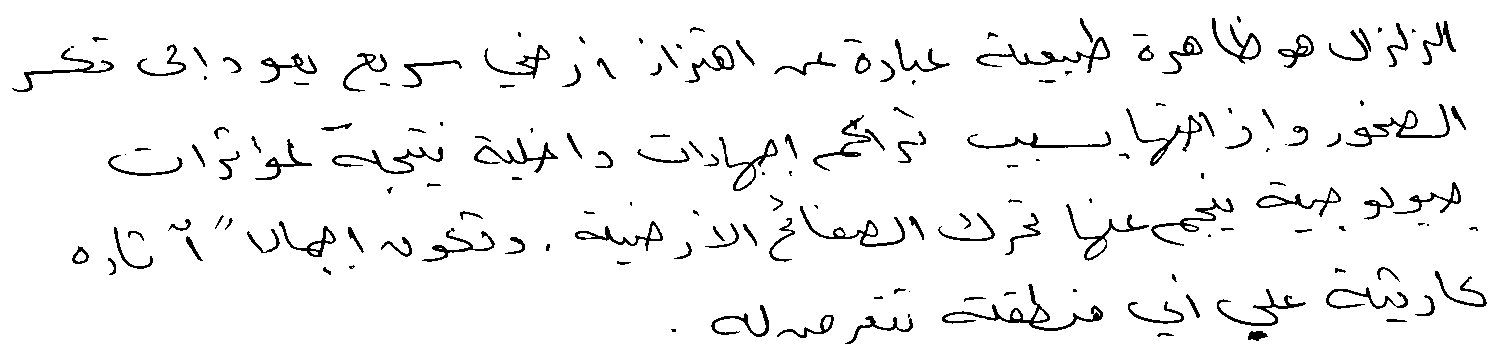 الزلزال هو ظاهرة طبيعية عبارة عن اهتزاز أرضي سريع يعود إلى تكسر
الصخور وإزاحتها بسبب تراكم إجهادات داخلية نتيجة لمؤثرات
جيولوجية ينجم عنها تحرك الصفائح الأرضية. وتكون إجمالا" آثاره
كارثية على أي منطقة تتعرض له.